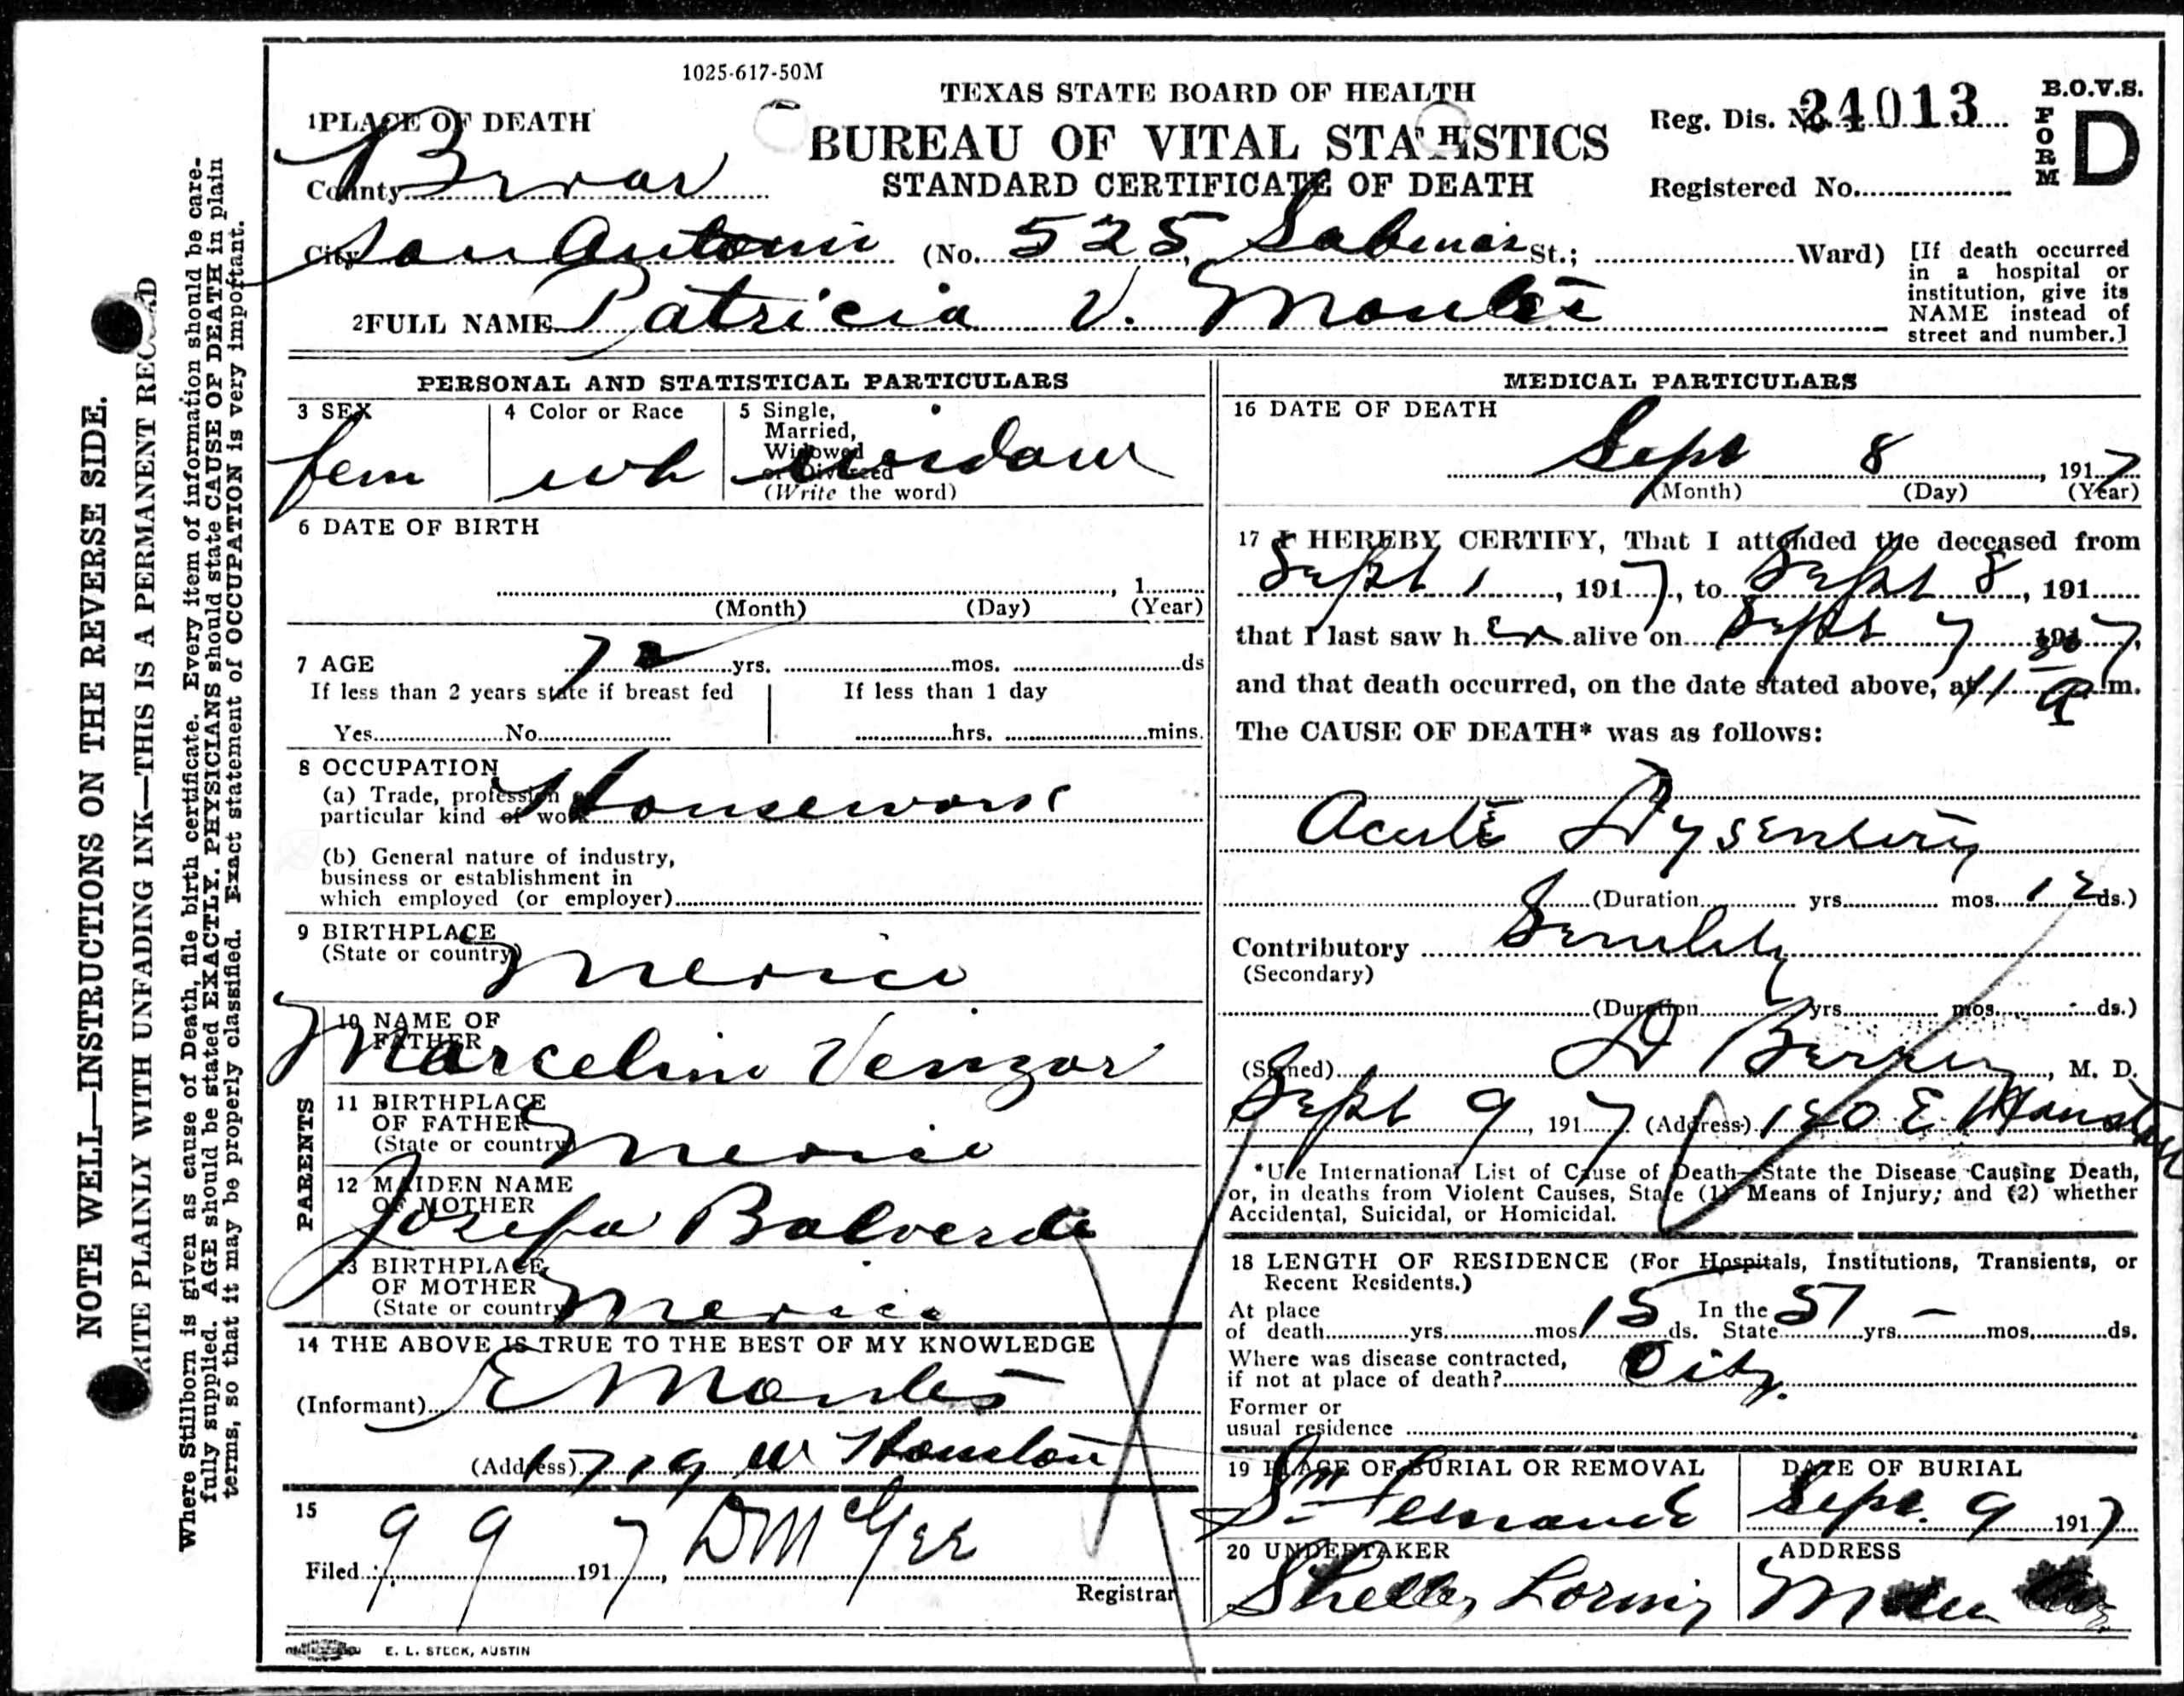 1025-617-50M
TEXAS STATE BOARD OF HEALTH
BUREAU OF VITAL STATISTICS
STANDARD CERTIFICATE OF DEATH
Reg. Dis. No. 24013
Registered No.
B.O.V.S.
FORM D
1 PLACE OF DEATH
County Bexar
City San Antonio (No. 525, Sabinas St.; Ward)
[If death occurred
in a hospital or
institution, give its
NAME instead of
street and number.]
2 FULL NAME Patricia V. Montes
NOTE WELL—INSTRUCTIONS ON THE REVERSE SIDE.
RITE PLAINLY WITH UNFADING INK—THIS IS A PERMANENT RECORD
Where Stillborn is given as cause of Death, file birth certificate. Every item of information should be care-
fully supplied. AGE should be stated EXACTLY. PHYSICIANS should state CAUSE OF DEATH in plain
terms, so that it may be properly classified. Exact statement of OCCUPATION is very important.
PERSONAL AND STATISTICAL PARTICULARS
3 SEX
fem
4 Color or Race
wh
5 Single,
Married,
Widowed
or Divorced
(Write the word)
widow
6 DATE OF BIRTH
, 1
(Month) (Day) (Year)
7 AGE 72 yrs. mos. ds
If less than 2 years state if breast fed
Yes No
If less than 1 day
hrs. mins.
8 OCCUPATION
(a) Trade, profession or
particular kind of work Housework
(b) General nature of industry,
business or establishment in
which employed (or employer)
9 BIRTHPLACE
(State or country) Mexico
PARENTS
10 NAME OF
FATHER
Marcelino Venzor
11 BIRTHPLACE
OF FATHER
(State or country) Mexico
12 MAIDEN NAME
OF MOTHER
Josefa Balverde
13 BIRTHPLACE
OF MOTHER
(State or country) Mexico
14 THE ABOVE IS TRUE TO THE BEST OF MY KNOWLEDGE
(Informant) E Montes
(Address) 1719 W Houston
15
Filed 9 9 1917, D McGee
Registrar
E. L. STECK, AUSTIN
MEDICAL PARTICULARS
16 DATE OF DEATH
Sept 8, 1917
(Month) (Day) (Year)
17 I HEREBY CERTIFY, That I attended the deceased from
Sept 1, 1917, to Sept 8, 191
that I last saw her alive on Sept 7 1917,
and that death occurred, on the date stated above, at 11 30 a m.
The CAUSE OF DEATH* was as follows:
Acute Dysentery
(Duration yrs. mos. 12 ds.)
Contributory Senility
(Secondary)
(Duration yrs. mos. ds.)
(Signed) D Berrey, M. D.
Sept 9, 1917 (Address) 120 E Houston
*Use International List of Cause of Death—State the Disease Causing Death,
or, in deaths from Violent Causes, State (1) Means of Injury; and (2) whether
Accidental, Suicidal, or Homicidal.
18 LENGTH OF RESIDENCE (For Hospitals, Institutions, Transients, or
Recent Residents.)
At place
of death yrs. mos. 15 ds. In the State 57 yrs. — mos. ds.
Where was disease contracted,
if not at place of death? City
Former or
usual residence
19 PLACE OF BURIAL OR REMOVAL
Sn Fernando
DATE OF BURIAL
Sept. 9 1917
20 UNDERTAKER
Shelley Loring
ADDRESS
Main